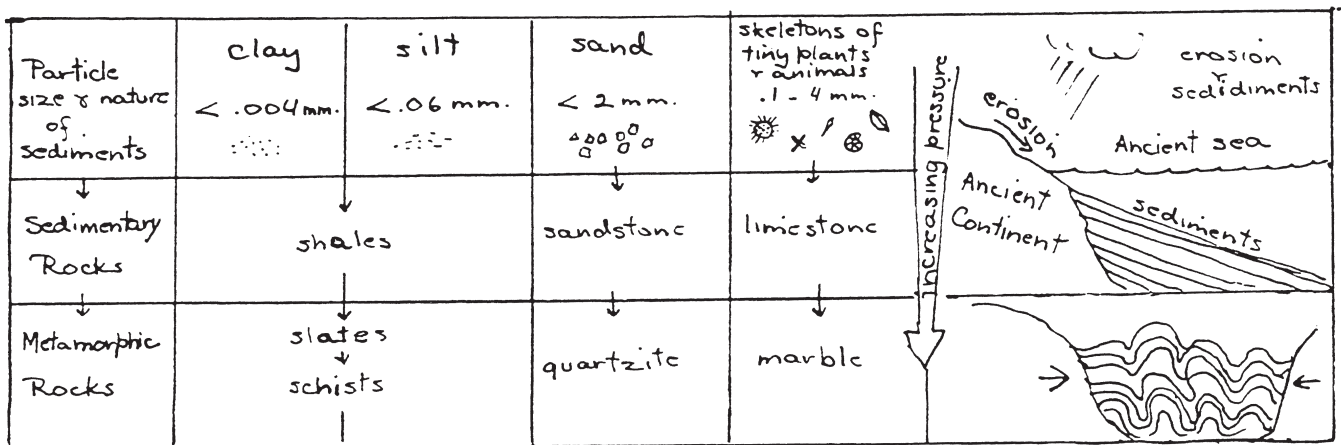 Particle
size & nature
of
sediments
clay
< .004 mm.
silt
< .06 mm.
sand
< 2 mm.
skeletons of
tiny plants
& animals
.1 - 4 mm.
Sedimentary
Rocks
shales
sandstone
limestone
Metamorphic
Rocks
slates
schists
quartzite
marble
increasing pressure
erosion
&
sedidiments
erosion
Ancient sea
Ancient
Continent
sediments